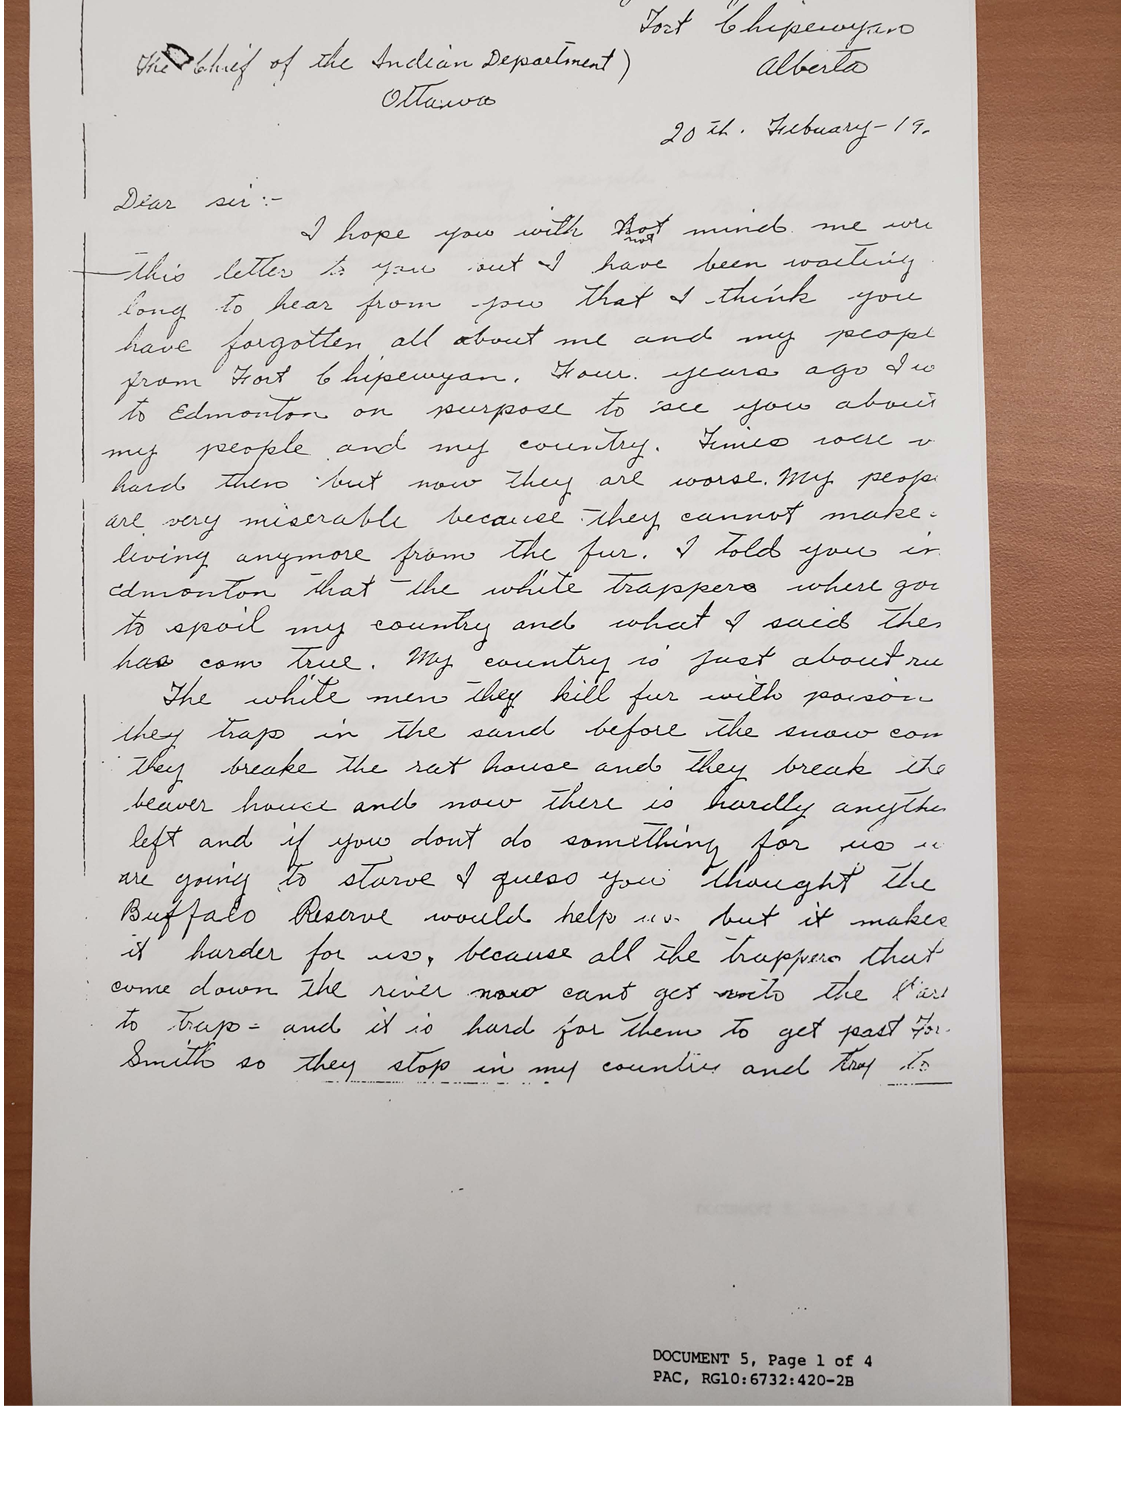 Fort Chipewyan
The Chief of the Indian Department)
Alberta
Ottawa
20th. Febuary-19.
Dear sir:-
I hope you with not mind me wri
this letter to you out I have been waiting
long to hear from you that I think you
have forgotten all about me and my peopl
from Fort Chipewyan. Four. years ago I w
to Edmonton on purpose to see you about
my people and my country. Times were v
hard then but now they are worse. My peop
are very miserable because they cannot make
living anymore from the fur. I told you in
Edmonton that the white trappers where goi
to spoil my country and what I said then
has com true. My country is just about ru
The white men they kill fur with poison
they trap in the sand before the snow com
they breake the rat house and they break the
beaver house and now there is hardly anythin
left and if you dont do something for us w
are going to starve I guess you thought the
Buffalo Reserve would help us. but it makes
it harder for us, because all the trappers that
come down the river now cant get into the Park
to trap = and it is hard for them to get past For
Smith so they stop in my country and try to
DOCUMENT 5, Page 1 of 4
PAC, RG10:6732:420-2B